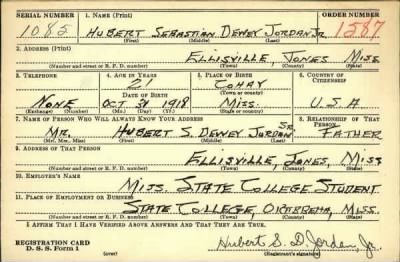 SERIAL NUMBER 1. NAME (Print) ORDER NUMBER
1085 HUBERT SEBASTIAN DEWEY JORDAN JR. 1587
(First) (Middle) (Last)
2. ADDRESS (Print)
ELLISVILLE, JONES MISS.
(Number and street or R. F. D. number) (Town) (County) (State)
3. TELEPHONE 4. AGE IN YEARS 5. PLACE OF BIRTH 6. COUNTRY OF CITIZENSHIP
21 COHAY
DATE OF BIRTH (Town or county)
NONE OCT 31 1918 MISS. U.S.A
(Exchange) (Number) (Mo.) (Day) (Yr.) (State or country)
7. NAME OF PERSON WHO WILL ALWAYS KNOW YOUR ADDRESS 8. RELATIONSHIP OF THAT PERSON
MR. HUBERT S. DEWEY JORDAN SR. FATHER
(Mr., Mrs., Miss) (First) (Middle) (Last)
9. ADDRESS OF THAT PERSON
ELLISVILLE, JONES, MISS
(Number and street or R. F. D. number) (Town) (County) (State)
10. EMPLOYER'S NAME
MISS. STATE COLLEGE STUDENT
11. PLACE OF EMPLOYMENT OR BUSINESS
STATE COLLEGE, OKTIBBEHA, MISS.
(Number and street or R. F. D. number) (Town) (County) (State)
I AFFIRM THAT I HAVE VERIFIED ABOVE ANSWERS AND THAT THEY ARE TRUE.
REGISTRATION CARD
D. S. S. Form 1 (over) Hubert S. D. Jordan, Jr.
(Registrant's signature)